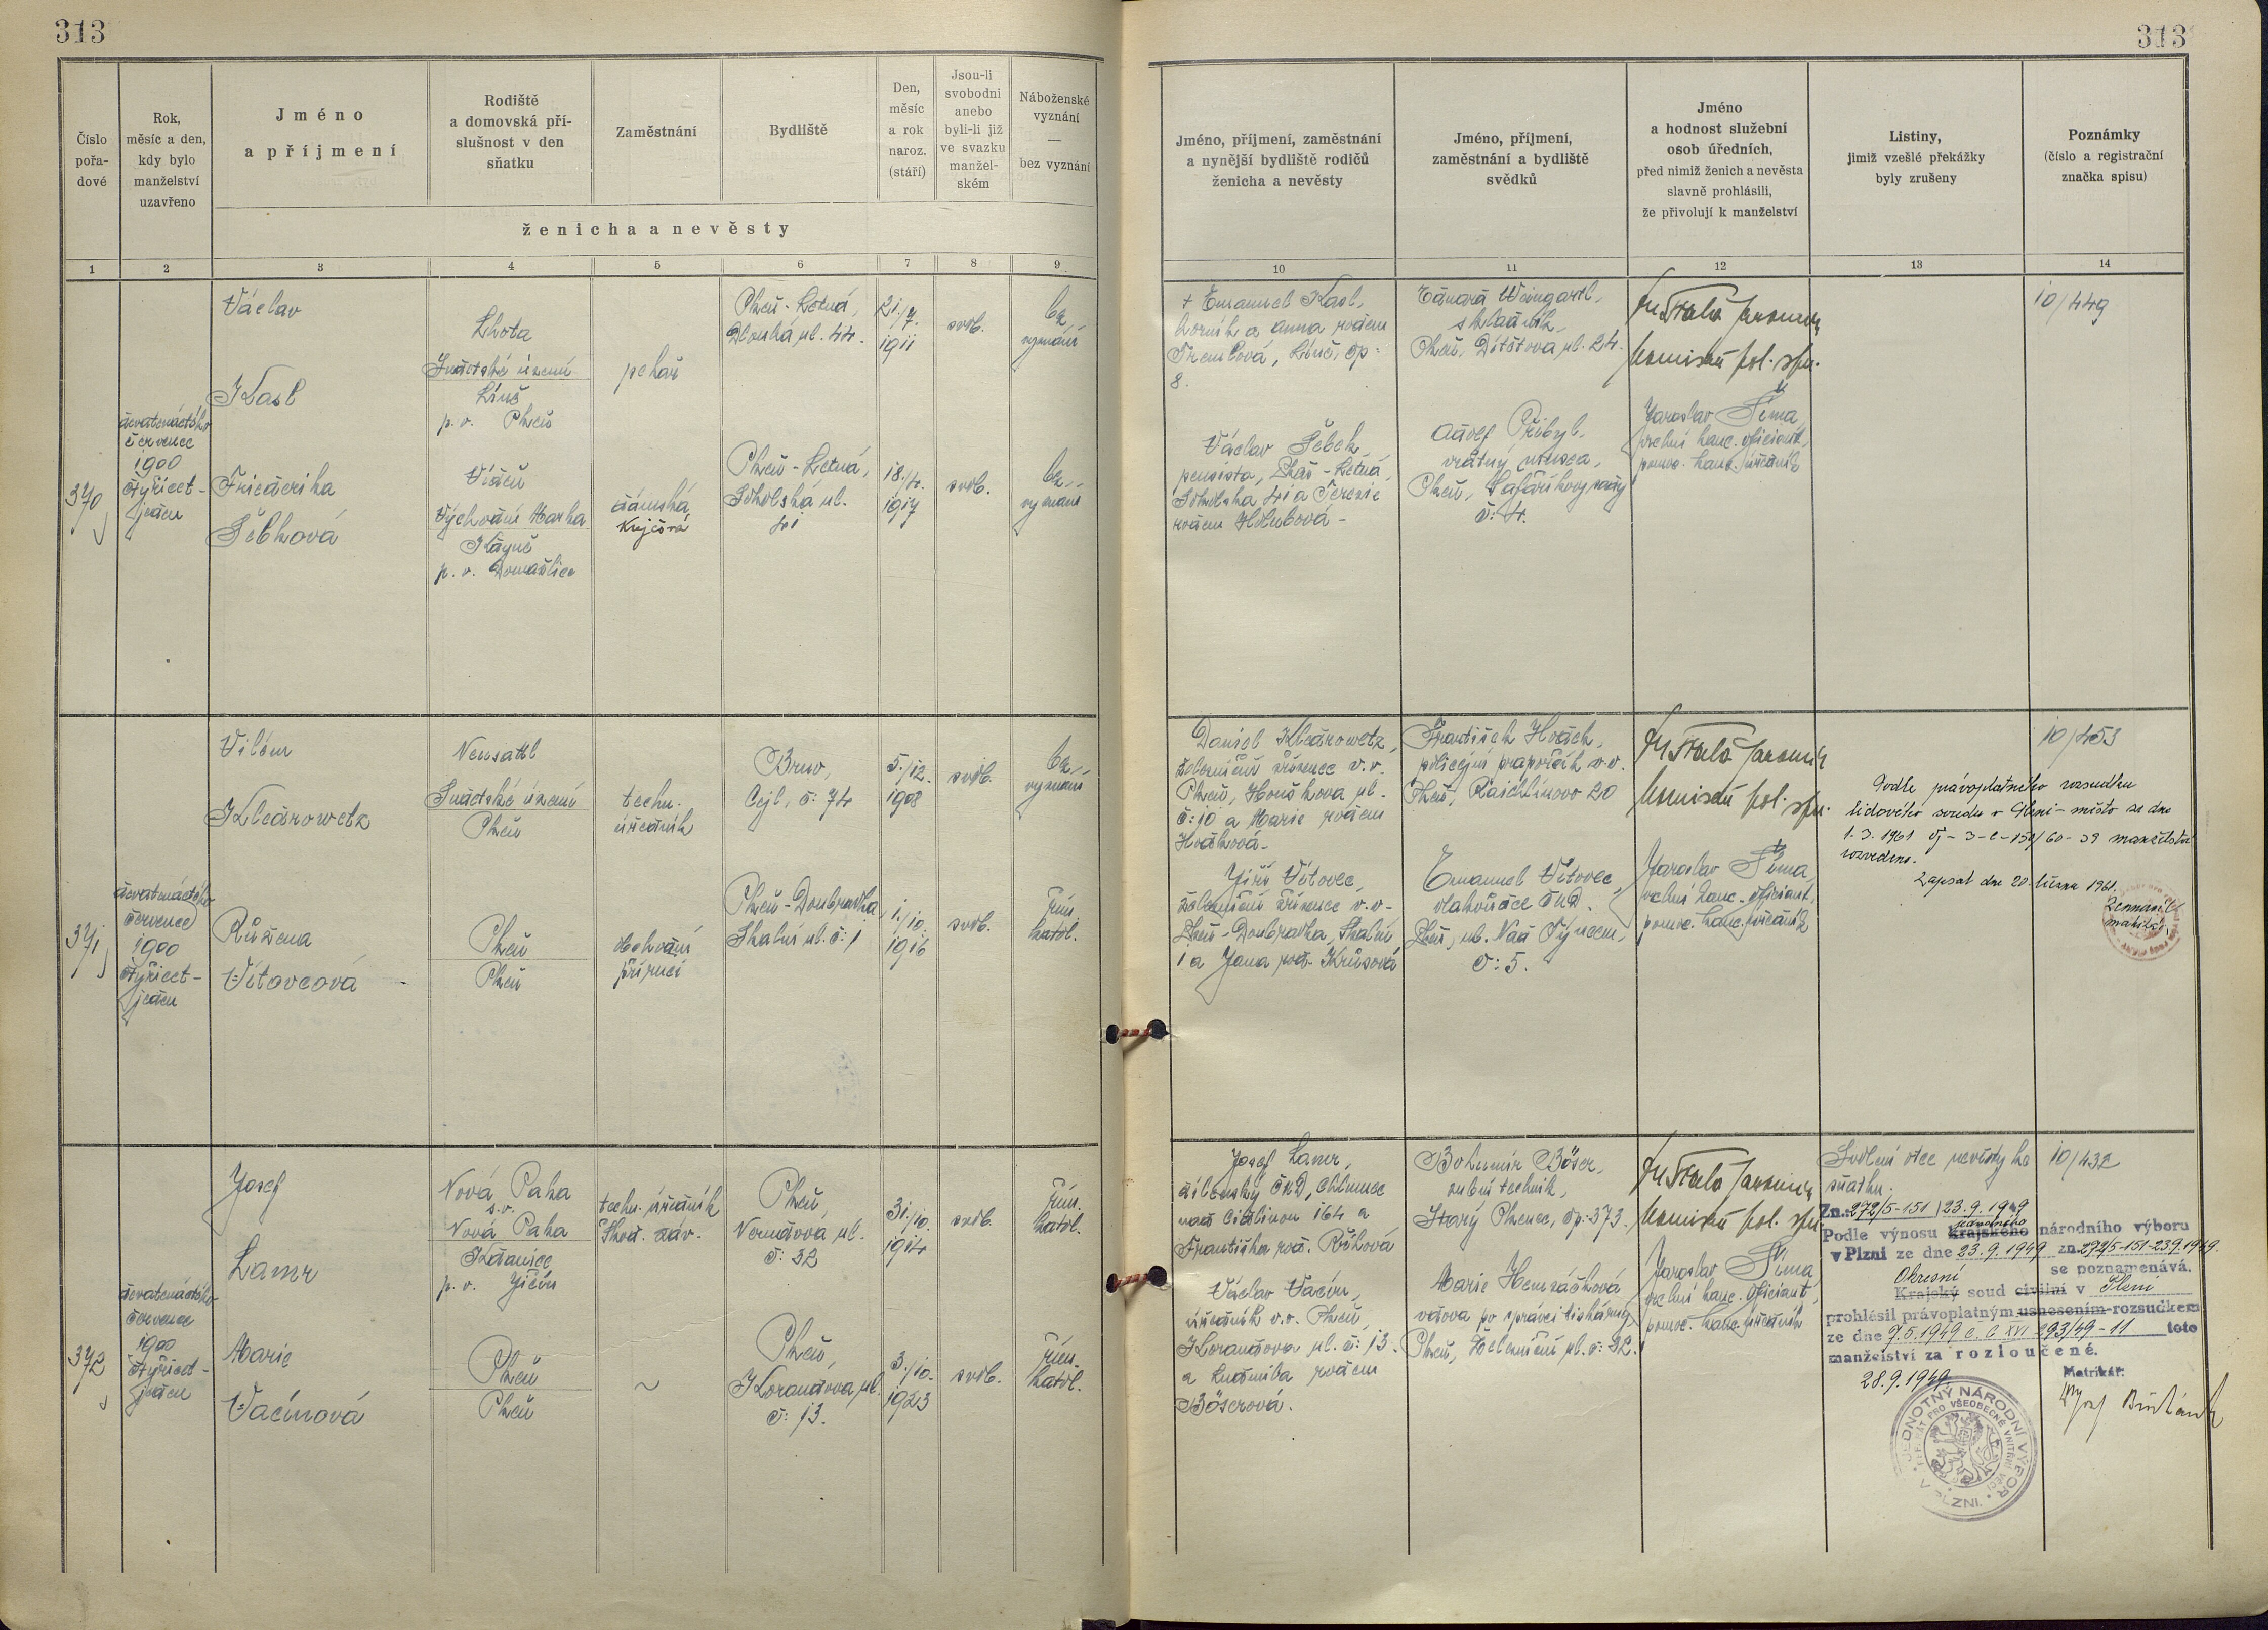 313
313
Číslo
pořa-
dové
Rok,
měsíc a den,
kdy bylo
manželství
uzavřeno
Jméno
a příjmení
Rodiště
a domovská pří-
slušnost v den
sňatku
Zaměstnání
Bydliště
Den,
měsíc
a rok
naroz.
(stáří)
Jsou-li
svobodni
anebo
byli-li již
ve svazku
manžel-
ském
Náboženské
vyznání
—
bez vyznání
ženicha a nevěsty
Jméno, příjmení, zaměstnání
a nynější bydliště rodičů
ženicha a nevěsty
Jméno, příjmení,
zaměstnání a bydliště
svědků
Jméno
a hodnost služební
osob úředních,
před nimiž ženich a nevěsta
slavně prohlásili,
že přivolují k manželství
Listiny,
jimiž vzešlé překážky
byly zrušeny
Poznámky
(číslo a registrační
značka spisu)
1 2 3 4 5 6 7 8 9 10 11 12 13 14
370
dvatenáctého
července
1900
čtyřicet-
jeden
Václav
Kasl
Friederika
Šebková
Lhota
Sudetské území
Líně
p. o. Plzeň
Vídeň
Východní Marka
Kdyně
p. o. Domažlice
pekař
dámská
krejčová
Plzeň - Letná,
Dlouhá ul. 44.
Plzeň - Letná,
Sokolská ul.
41
21./7.
1911
18./4.
1917
svob.
svob.
bez
vyznání
bez
vyznání
† Emanuel Kasl,
horník a Anna rozen
Tremlová, Líně, čp.
8.
Václav Šebek,
pensista, Plzeň - Letná,
Sokolská 41 a Terezie
rozen Holubová -
Eduard Weingartl,
skladník,
Plzeň, Dítětova ul. 24.
Adolf Přibyl,
vrátný musea,
Plzeň, Šafaříkovy sady
č: 4.
komisař pol. spr.
Jaroslav Šíma,
zvelní kanc. oficiant,
pomoc. kanc. úředník
10/449
371
dvatenáctého
července
1900
čtyřicet-
jeden
Vilém
Kledrowetz
Růžena
Vítovcová
Neusattl
Sudetské území
Plzeň
Plzeň
Plzeň
techn.
úředník
obchodní
příručí
Brno,
Cejl, č: 74
Plzeň - Doubravka,
Skalní ul. č: 1
5./12.
1908
1./10.
1916
svob.
svob.
bez
vyznání
řím.
katol.
Daniel Kledrowetz,
železniční zřízenec v.v.
Plzeň, Houškova ul.
č: 10 a Marie rozen
Hodková -
Jiří Vítovec,
železniční zřízenec v.v.
Plzeň - Doubravka, Skalní
1 a Jana roz. Krůsová
František Hodek,
policejní praporčík v.v.
Plzeň, Raichlinovo 20
Emanuel Vítovec,
vlakvůdce ČKD.
Plzeň, ul. Nad Týncem,
č: 5.
komisař pol. spr.
Jaroslav Šíma,
zvelní kanc. oficiant,
pomoc. kanc. úředník
Podle právoplatného rozsudku
lidového soudu v Plzni - město ze dne
1. 3. 1961 čj - 3-C-150/60-39 manželství
rozvedeno.
Zapsal dne 20. března 1961.
10/453
372
dvatenáctého
července
1900
čtyřicet-
jeden
Josef
Lamr
Marie
Vacínová
Nová Paka
s. o.
Nová Paka
Kdanice
p. o. Jičín
Plzeň
Plzeň
techn. úředník
Škod. záv.
~
Plzeň,
Nerudova ul.
č: 32
Plzeň,
Korandova ul.
č: 13.
31./10.
1914
3./10.
1923
svob.
svob.
řím.
katol.
řím.
katol.
Josef Lamr,
dílenský ČKD, Chlumec
nad Cidlinou 164 a
Františka roz. Růková
Václav Vacín,
úředník v.v. Plzeň,
Korandova ul. č: 13.
a Ludmila rozen
Böserová.
Bohumír Böser,
zubní technik,
Starý Plzenec, čp: 373.
Marie Hemzáčková
vdova po správci tiskárny
Plzeň, Železniční ul. č: 32.
komisař pol. spr.
Jaroslav Šíma,
zvelní kanc. oficiant,
pomoc. kanc. úředník
Svolení otce nevěsty ke
sňatku.
10/432
Zn.: 272/5-151 23.9.1949
Podle výnosu Krajského národního výboru
v Plzni ze dne 23.9.1949 zn. 272/5-151-23.9.1949.
se poznamenává.
Okresní
Krajský soud civilní v Plzni
prohlásil právoplatným usnesením-rozsudkem
ze dne 7.5.1949 č. C XVI 293/49-11 toto
manželství za rozloučené.
28.9.1949.
Matrikář:
JEDNOTNÝ NÁRODNÍ VÝBOR
V PLZNI.
REFERÁT PRO VŠEOBECNÉ VNITŘNÍ VĚCI